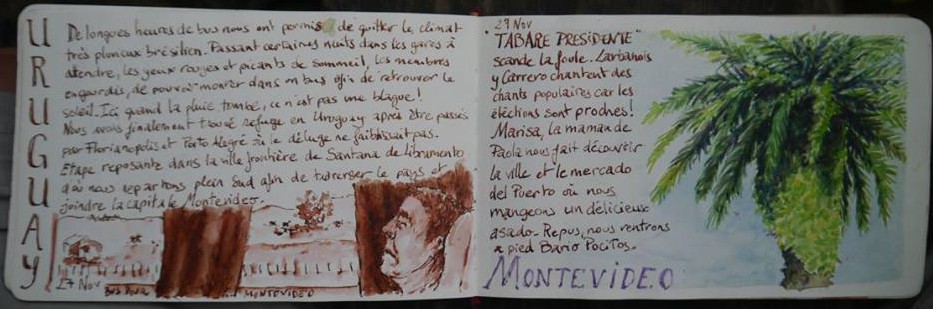 URUGUAY
De longues heures de bus nous ont permis de quitter le climat
très pluvieux brésilien. Passant certaines nuits dans les gares à
attendre, les yeux rouges et picants de sommeil, les membres
engourdis, de pouvoir monter dans un bus afin de retrouver le
soleil. Ici quand la pluie tombe, ce n'est pas une blague!
Nous avons finalement trouvé refuge en Uruguay après être passés
par Florianopolis et Porto Alegre où le déluge ne faiblissait pas.
Etape reposante dans la ville frontière de Santana de Libramento
d'où nous repartons plein Sud afin de traverser le pays et
joindre la capitale Montevideo.
27 Nov
BUS POUR MONTEVIDEO
29 Nov
"TABARE PRESIDENTE"
scande la foule. Larbanois
y Carrero chantent des
chants populaires car les
éléctions sont proches!
Marisa, la maman de
Paola nous fait découvrir
la ville et le mercado
del Puerto où nous
mangeons un délicieux
asado. Repus, nous rentrons
a pied Bario Pocitos.
MONTEVIDEO